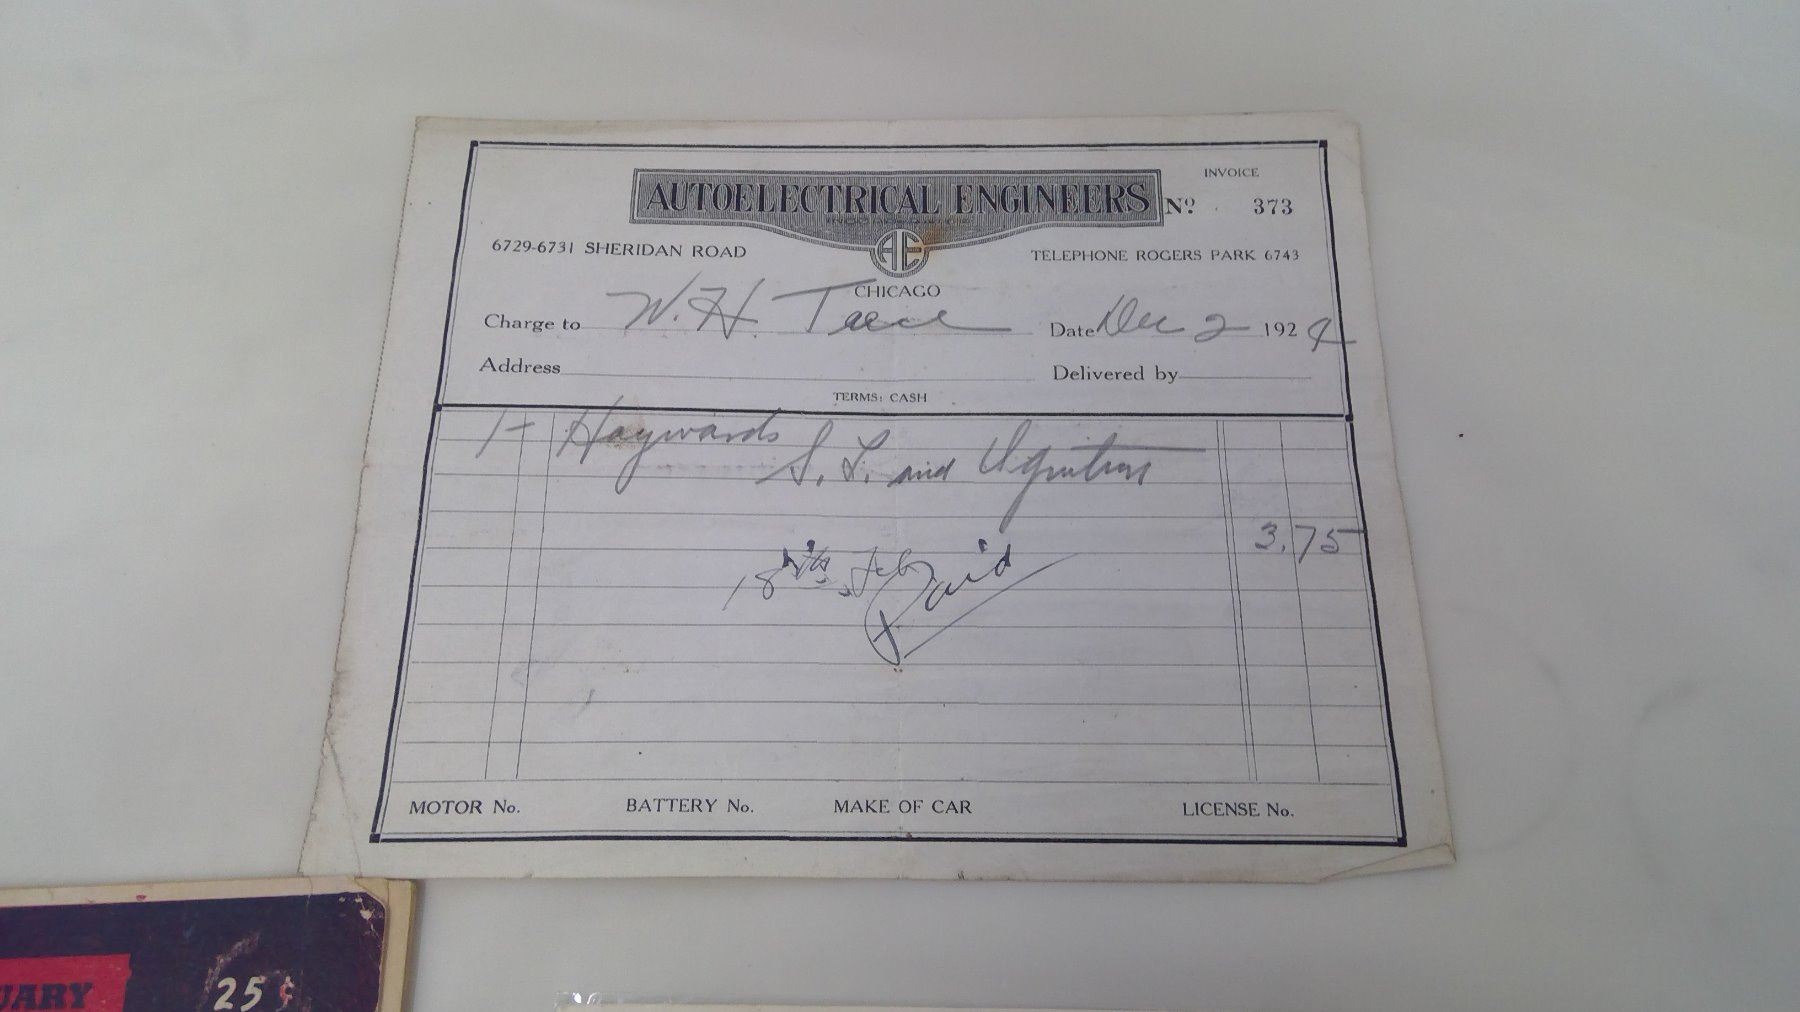 INVOICE
AUTOELECTRICAL ENGINEERS
Nº 373
6729-6731 SHERIDAN ROAD
AE
TELEPHONE ROGERS PARK 6743
CHICAGO
Charge to W. H.
Date Dec 2 1924
Address
Delivered by
TERMS: CASH
1- Haywards
S. L. and Ignition
3.75
18th Feb
Paid
MOTOR No. BATTERY No. MAKE OF CAR LICENSE No.
UARY
25¢